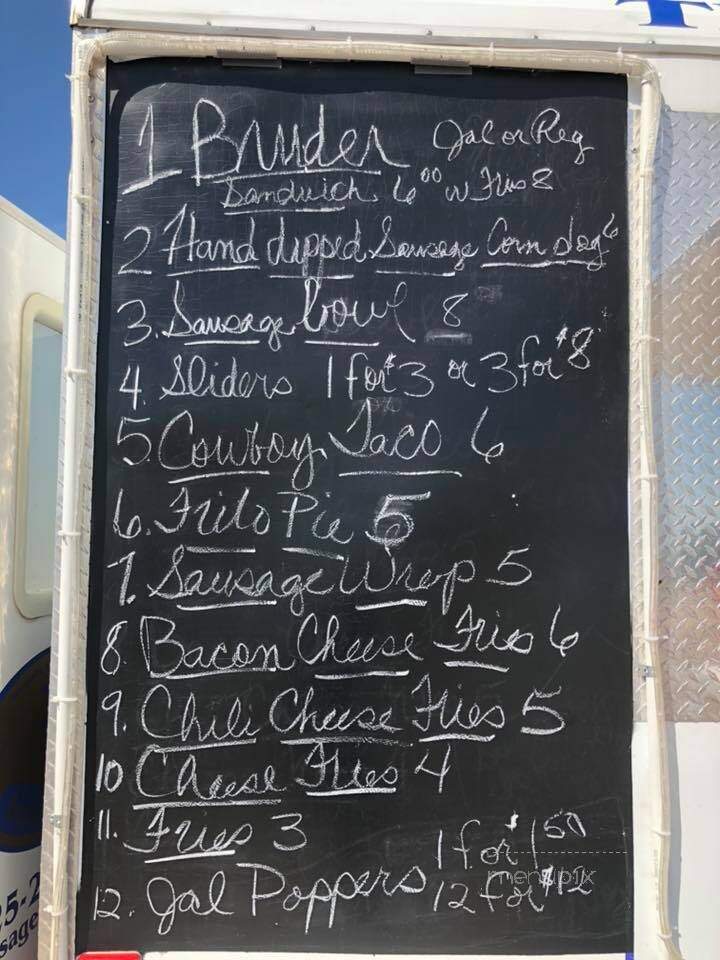 T
1 Bruder Jal or Reg
Sandwich 6⁰⁰ w Fries 8
2 Hand dipped Sausage Corn dog 6
3. Sausage bowl 8
4. Sliders 1 for $3 or 3 for $8
5 Cowboy Taco 6
6. Frito Pie 5
7. Sausage Wrap 5
8. Bacon Cheese Fries 6
9. Chili Cheese Fries 5
10 Cheese Fries 4
11. Fries 3
12. Jal Poppers 1 for $1 50
12 for $12
menupix
5-2
sage